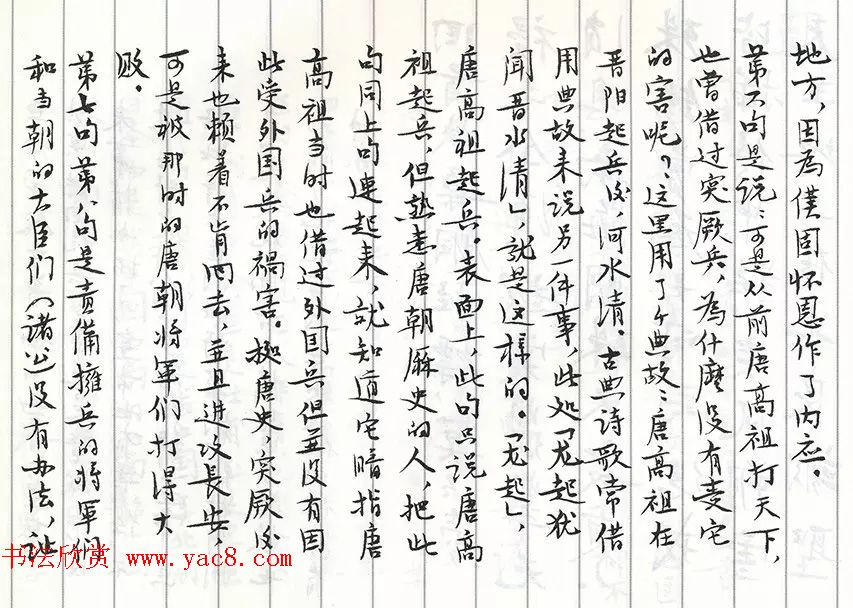 地方，因為僕固怀恩作了内应。
第六句是说：可是从前唐高祖打天下，
也曾借过突厥兵，為什麼没有受它
的害呢？这里用了个典故：唐高祖在
晋阳起兵后，河水清。古典诗歌常借
用典故来说另一件事，此处「龙起犹
闻晋水清」，就是这样的。「龙起」，
唐高祖起兵。表面上，此句只说唐高
祖起兵，但熟悉唐朝厤史的人，把此
句同上句連起来，就知道它暗指唐
高祖当时也借过外国兵但並没有因
此受外国兵的禍害。按唐史，突厥后
来也赖着不肯回去，並且进攻長安，
可是被那时的唐朝将軍们打得大
败。
第七句第八句是责備擁兵的将軍们
和当朝的大臣们（诸公）没有办法，让
书法欣赏 www.yac8.com